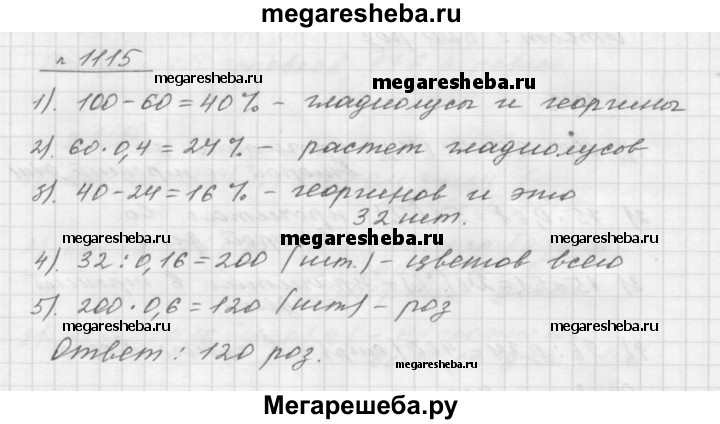 megaresheba.ru
n 1115
megaresheba.ru megaresheba.ru
1). 100-60=40% - гладиолусы и георгины
2). 60·0,4=24% - растет гладиолусов
3). 40-24=16% - георгинов и это
32 шт.
megaresheba.ru megaresheba.ru megaresheba.ru
4). 32:0,16=200 (шт.) - цветов всего
5). 200·0,6=120 (шт) - роз
megaresheba.ru megaresheba.ru
Ответ: 120 роз.
Мегарешеба.ру